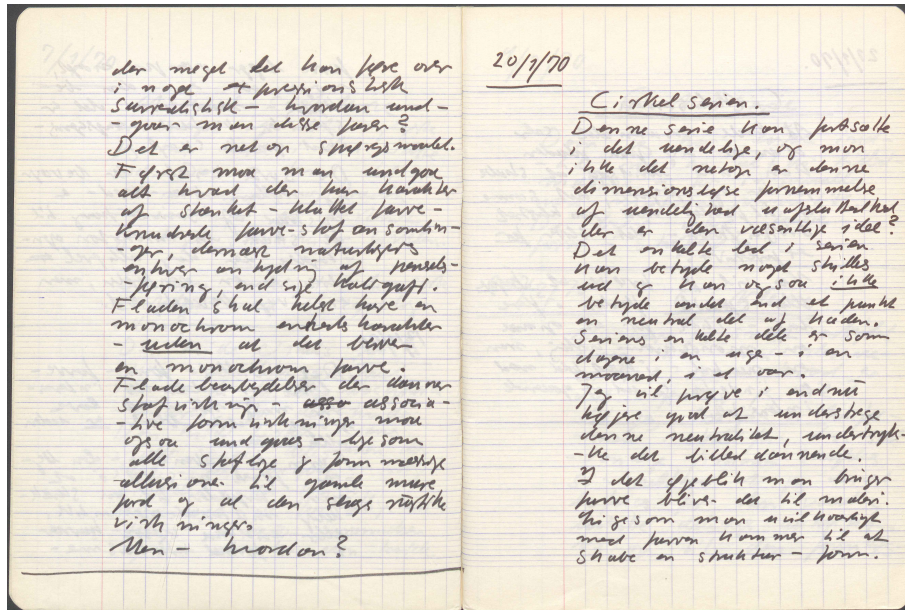 der meget let kan føre over
i noget expressionistisk
surrealistisk – hvordan und-
-gaar man disse farer?
Det er netop spørgsmaalet.
Først maa man undgaa
alt hvad der har karakter
af stænket – klattet farve –
knudrede farve-stof ansamlin-
-ger, dernæst naturligvis
enhver antydning af pensel-
-føring, endsige kaligrafi.
Fladen skal helst have en
monochrom enheds karakter
– uden at det bliver
en monochrom farve.
Flade bearbejdelser der danner
stofvirkning – associa-
-tive formvirkninger maa
ogsaa undgaaes – ligesom
alle stoflige og formmæssige
allusioner til gamle mure
jord og al den slags rustikke
virkninger.
Men – hvordan?
20/7/70
Cirkel serien.
Denne serie kan fortsætte
i det uendelige, og mon
ikke det netop er denne
dimensionsløse fornemmelse
af uendelighed uafsluttethed
der er den væsentlige idé?
Det enkelte led i serien
kan betyde noget skilles
ud og kan ogsaa ikke
betyde andet end et punkt
en neutral del af kæden.
Seriens enkelte dele er som
dagene i en uge – i en
maaned, i et aar.
Jeg vil prøve i endnu
højere grad at understrege
denne neutralitet, undertryk-
-ke det billeddannende.
I det øjeblik man bruger
farve bliver det til maleri.
Ligesom man uvilkaarligt
med farven kommer til at
skabe en struktur – form.